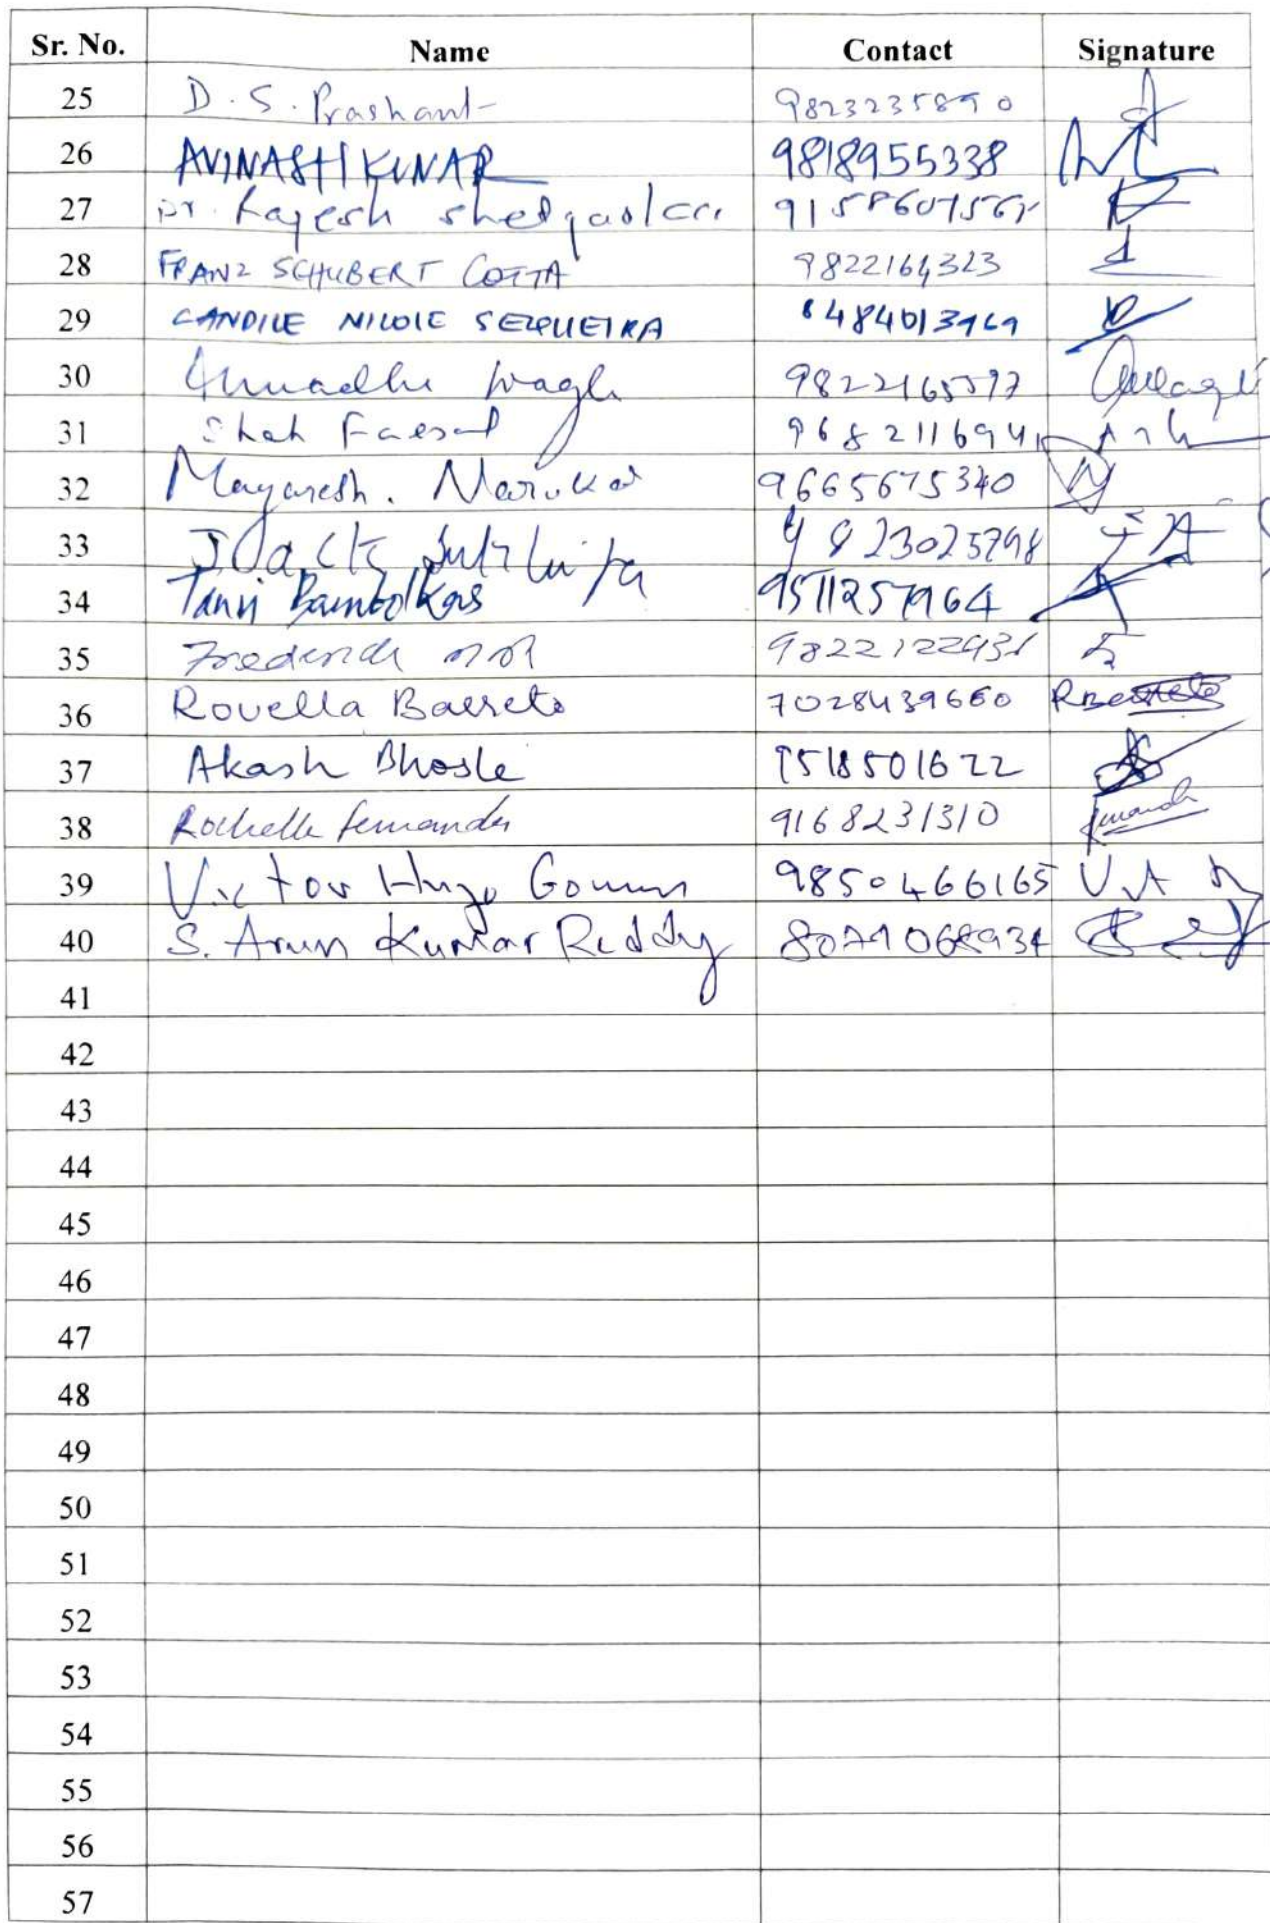 Sr. No. Name Contact Signature
25 D. S. Prashant 9823235890
26 AVINASH KUMAR 9818955338
27 Dr. Rajesh shetgaokar
28 FRANZ SCHUBERT COTTA 9822164323
29 CANDICE NICOLE SEQUEIRA
30 Anuradha Wagle 9822165597
31 Shah Faesal 968211694
32 Mayuresh. 9665675340
33 Jack 9823025798
34 Tanvi Bambolkar
35 9822122931
36 Rovella Barreto 7028439660 RBarreto
37 Akash Bhosle 9518501622
38 Rochelle fernandes 9168231310
39 Victor Hugo Gomes 9850466165
40 S. Arun Kumar Reddy
41
42
43
44
45
46
47
48
49
50
51
52
53
54
55
56
57